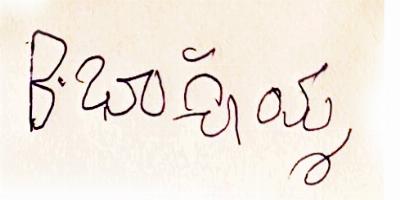 B. బాపయ్య